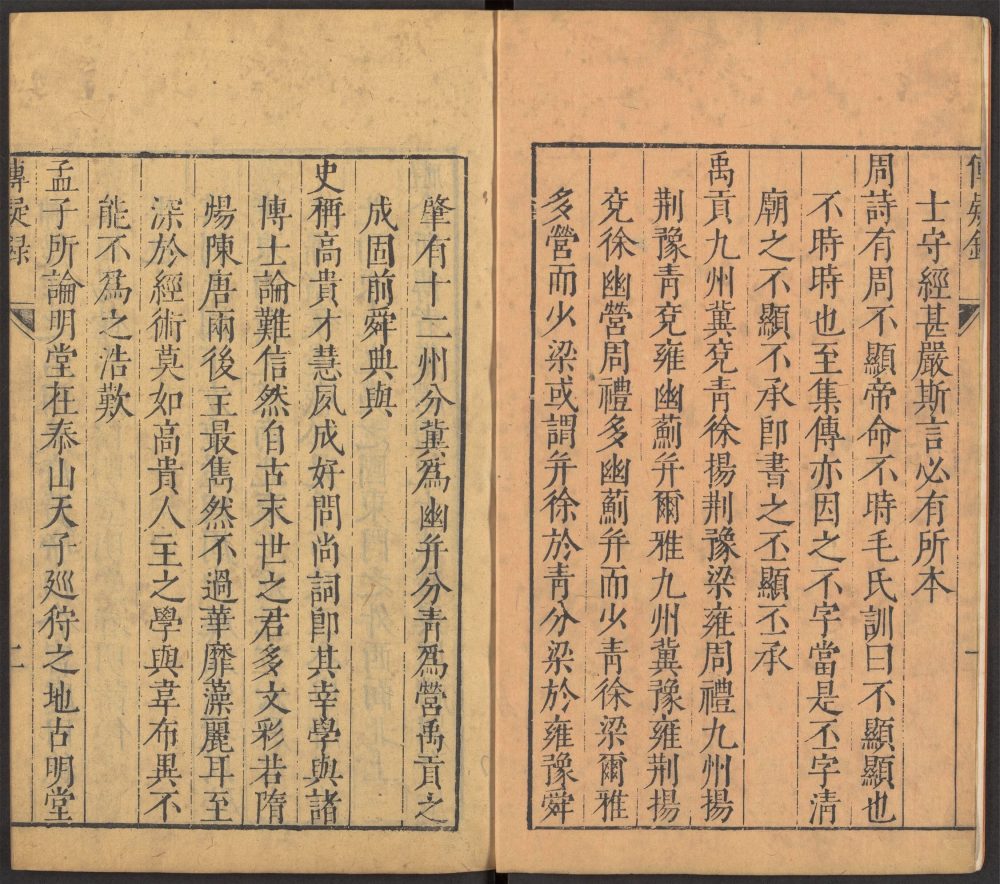 傳疑錄
一
士守經甚嚴斯言必有所本
周詩有周不顯帝命不時毛氏訓曰不顯顯也
不時時也至集傳亦因之不字當是丕字清
廟之不顯不承即書之丕顯丕承
禹貢九州冀兗青徐揚荆豫梁雍周禮九州揚
荆豫青兗雍幽薊并爾雅九州冀豫雍荆揚
兗徐幽營周禮多幽薊并而少青徐梁爾雅
多營而少梁或謂并徐於青分梁於雍豫舜
肇有十二州分冀爲幽并分青爲營禹貢之
成固前舜典與
史稱高貴才慧夙成好問尚詞即其幸學與諸
博士論難信然自古末世之君多文彩若隋
煬陳唐兩後主最雋然不過華靡藻麗耳至
深於經術莫如高貴人主之學與韋布異不
能不爲之浩歎
孟子所論明堂在泰山天子廵狩之地古明堂
傳疑錄
二